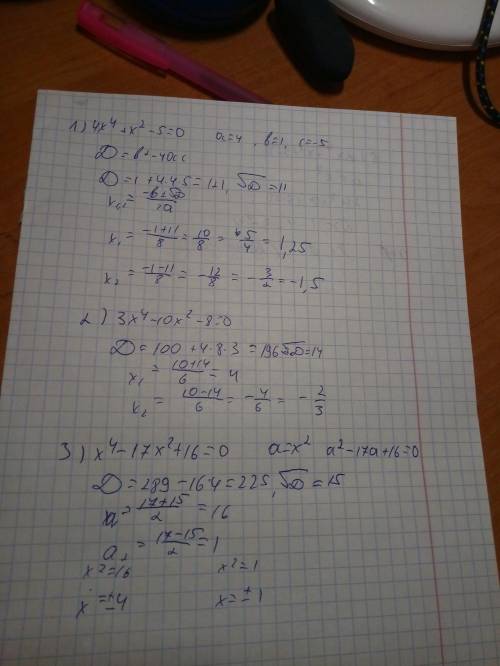 1) 4x⁴+x²-5=0 a=4, b=1, c=-5
D=b²-4ac
D=1+4·4·5=121, √D=11
x₁,₂=(-b±√D)/2a
x₁=(-1+11)/8=10/8=5/4=1,25
x₂=(-1-11)/8=-12/8=-3/2=-1,5
2) 3x⁴-10x²-8=0
D=100+4·8·3=196 √D=14
x₁=(10+14)/6=4
x₂=(10-14)/6=-4/6=-2/3
3) x⁴-17x²+16=0 a=x² a²-17a+16=0
D=289-16·4=225, √D=15
a=(17+15)/2=16
a₂=(17-15)/2=1
x²=16 x²=1
x=±4 x=±1